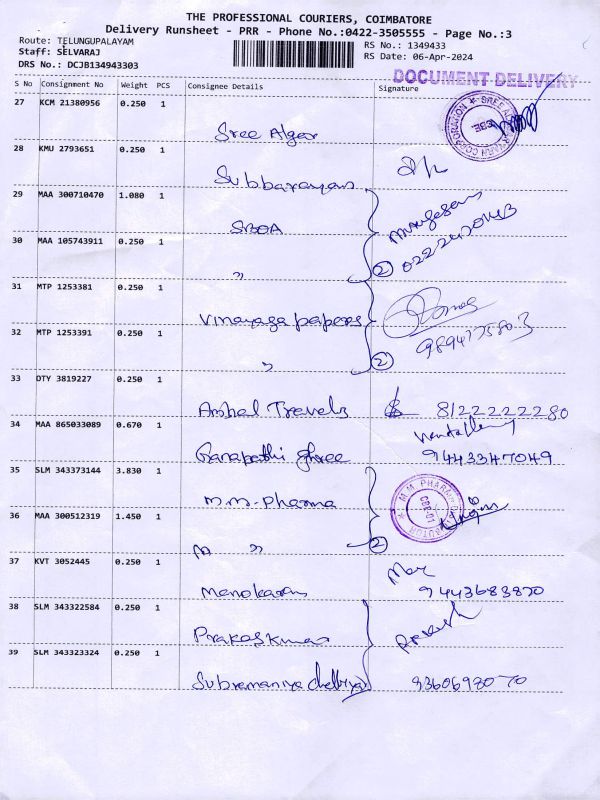 THE PROFESSIONAL COURIERS, COIMBATORE
Delivery Runsheet - PRR - Phone No.:0422-3505555 - Page No.:3
Route: TELUNGUPALAYAM
Staff: SELVARAJ
DRS No.: DCJB134943303
RS No.: 1349433
RS Date: 06-Apr-2024
DOCUMENT DELIVERY
S No Consignment No Weight PCS Consignee Details Signature
27 KCM 21380956 0.250 1
Sree Alger
28 KMU 2793651 0.250 1
Subbarayan
29 MAA 300710470 1.080 1
SBOA
Murugesan
30 MAA 105743911 0.250 1
" 2
31 MTP 1253381 0.250 1
Vinayaga papers
32 MTP 1253391 0.250 1
" 2
33 OTY 3819227 0.250 1
Anshel Travels 8122222280
34 MAA 865033089 0.670 1
Ganapathi Shree 9443347049
35 SLM 343373144 3.830 1
M.M. Pharma
M.M. PHARMA
36 MAA 300512319 1.450 1
" 2
37 KVT 3052445 0.250 1
Manokaran 9443683870
38 SLM 343322584 0.250 1
Prakaskumar
39 SLM 343323324 0.250 1
Subramaniya Chettiyar 8360698070